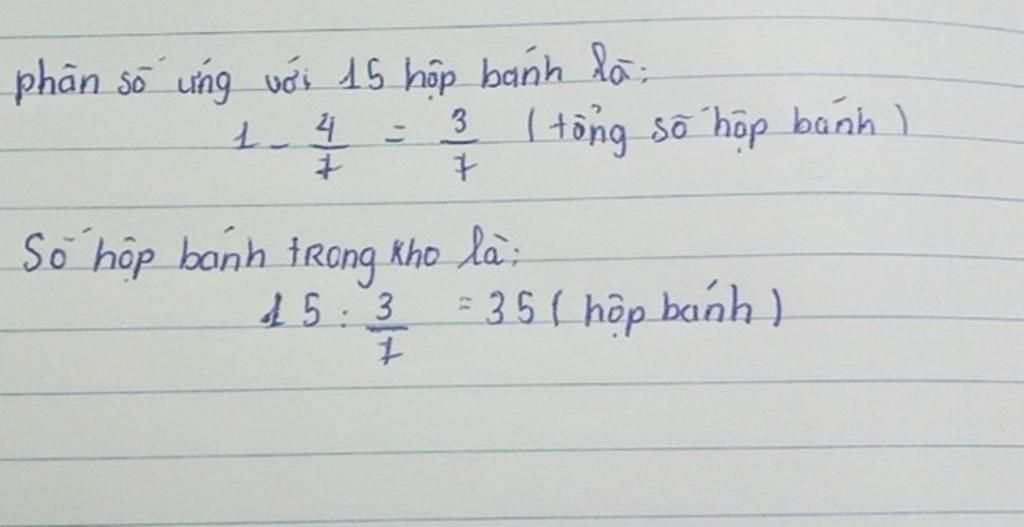 phân số ứng với 15 hộp bánh là:
1 - 4/7 = 3/7 (tổng số hộp bánh)
Số hộp bánh trong kho là:
15 : 3/7 = 35 (hộp bánh)